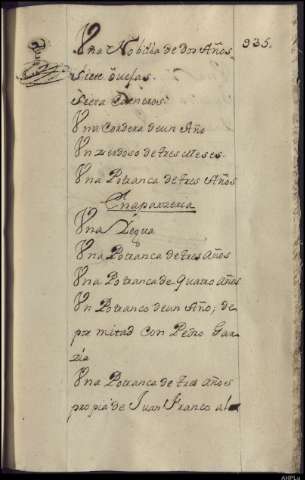 935.
Una Nobilla de dos Años
Siete óuejas.
Siete Carneros.
Una Cordera de un Año
Un zerdoso de tres Meses.
Una Potranca de tres Años
Chaparreria
Una Yegua
Una Potranca de tres Años
Una Potranca de Quatro Años
Un Potranco de un Año; de
por mitad con Pedro Gar-
zia
Una Potranca de tres Años
propia de Juan Franco al
AHPLe